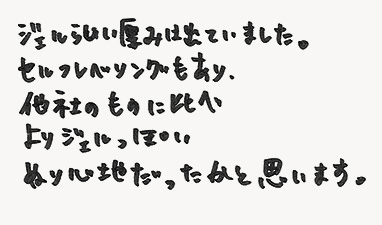 ジェルらしい厚みは出ていました。
セルフレベリングもあり、
他社のものに比べ
よりジェルっぽい
ぬり心地だったかと思います。